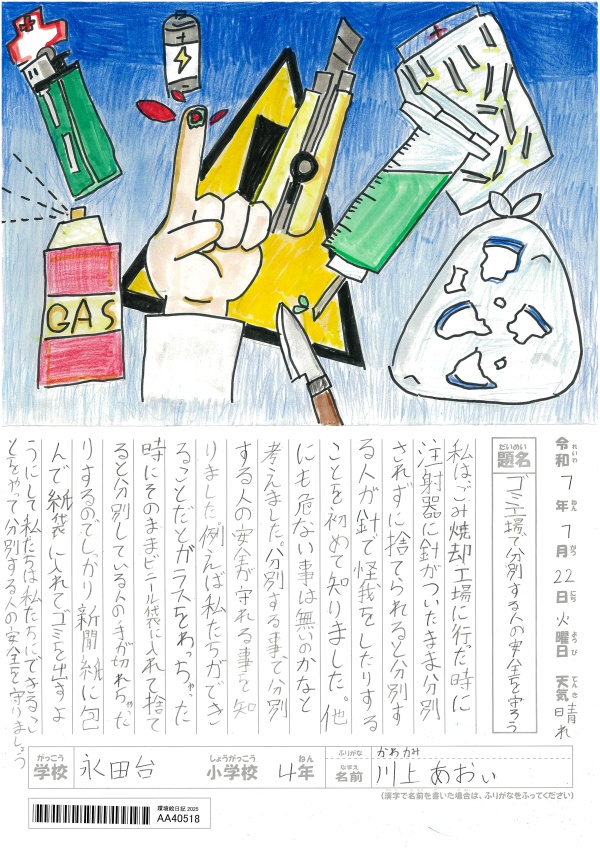 GAS
令和7年7月22日火曜日 天気晴れ
れいわ ねん がつ にち ようび てんき
だいめい
題名 ゴミ工場で分別する人の安全を守ろう
私は、ごみ焼却工場に行った時に
注射器に針がついたまま分別
されずに捨てられると分別す
る人が針で怪我をしたりする
ことを初めて知りました。他
にも危ない事は無いのかなと
考えました。分別する事で分別
する人の安全が守れる事を知
りました。例えば私たちができ
ることだとガラスをわっちゃった
時にそのままビニール袋に入れて捨て
ると分別している人の手が切れちゃった
りするのでしっかり新聞紙に包
んで紙袋に入れてゴミを出すよ
うにして私たちは私たちにできるこ
とをやって分別する人の安全を守りましょう
がっこう しょうがっこう ねん ふりがな かわかみ
学校 永田台 小学校 4年 なまえ 名前 川上あおい
(漢字で名前を書いた場合は、ふりがなをふってください)
環境絵日記 2025
AA40518